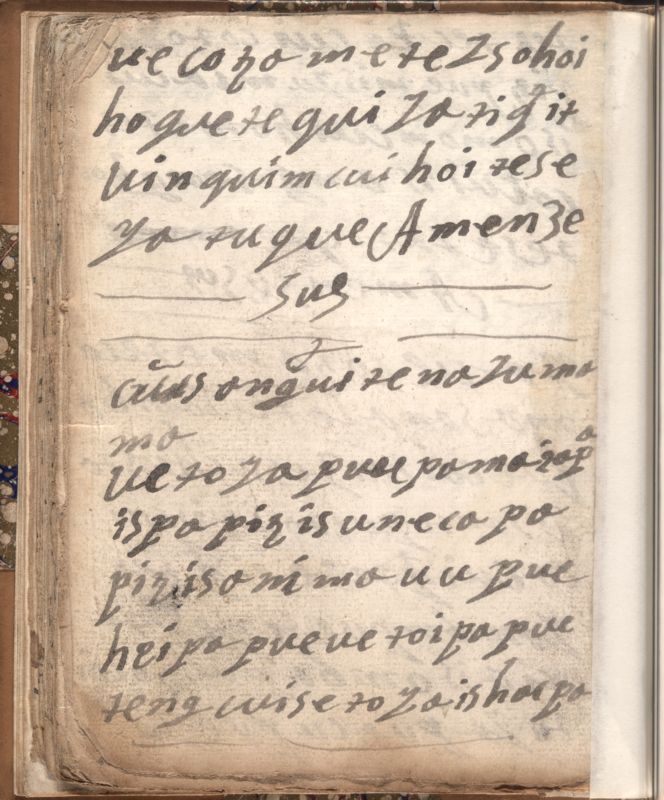 ue co zo me te Zsohoi
ho que te qui Zo tiqit
uin quim cui hoi tese
yo tuque Amen Ze
sus
onqui te no Zumo
mo
ue to Zo puoe pomo
ispo piz is uneco po
piz iso ni mo uu pue
hzi po pue ue toi po pue
tenq cuise to Zo is hoc po